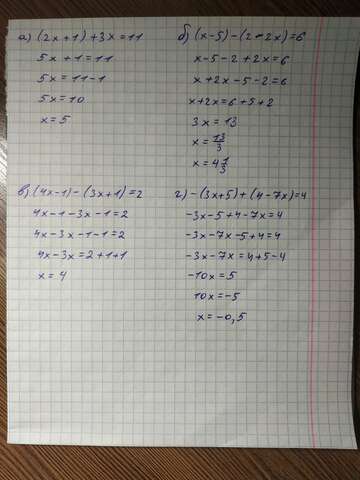 а) (2x+1)+3x=11
5x+1=11
5x=11-1
5x=10
x=5
б) (x-5)-(2-2x)=6
x-5-2+2x=6
x+2x-5-2=6
x+2x=6+5+2
3x=13
x=13/3
x=4 1/3
в) (4x-1)-(3x+1)=2
4x-1-3x-1=2
4x-3x-1-1=2
4x-3x=2+1+1
x=4
г) -(3x+5)+(4-7x)=4
-3x-5+4-7x=4
-3x-7x-5+4=4
-3x-7x=4+5-4
-10x=5
10x=-5
x=-0,5